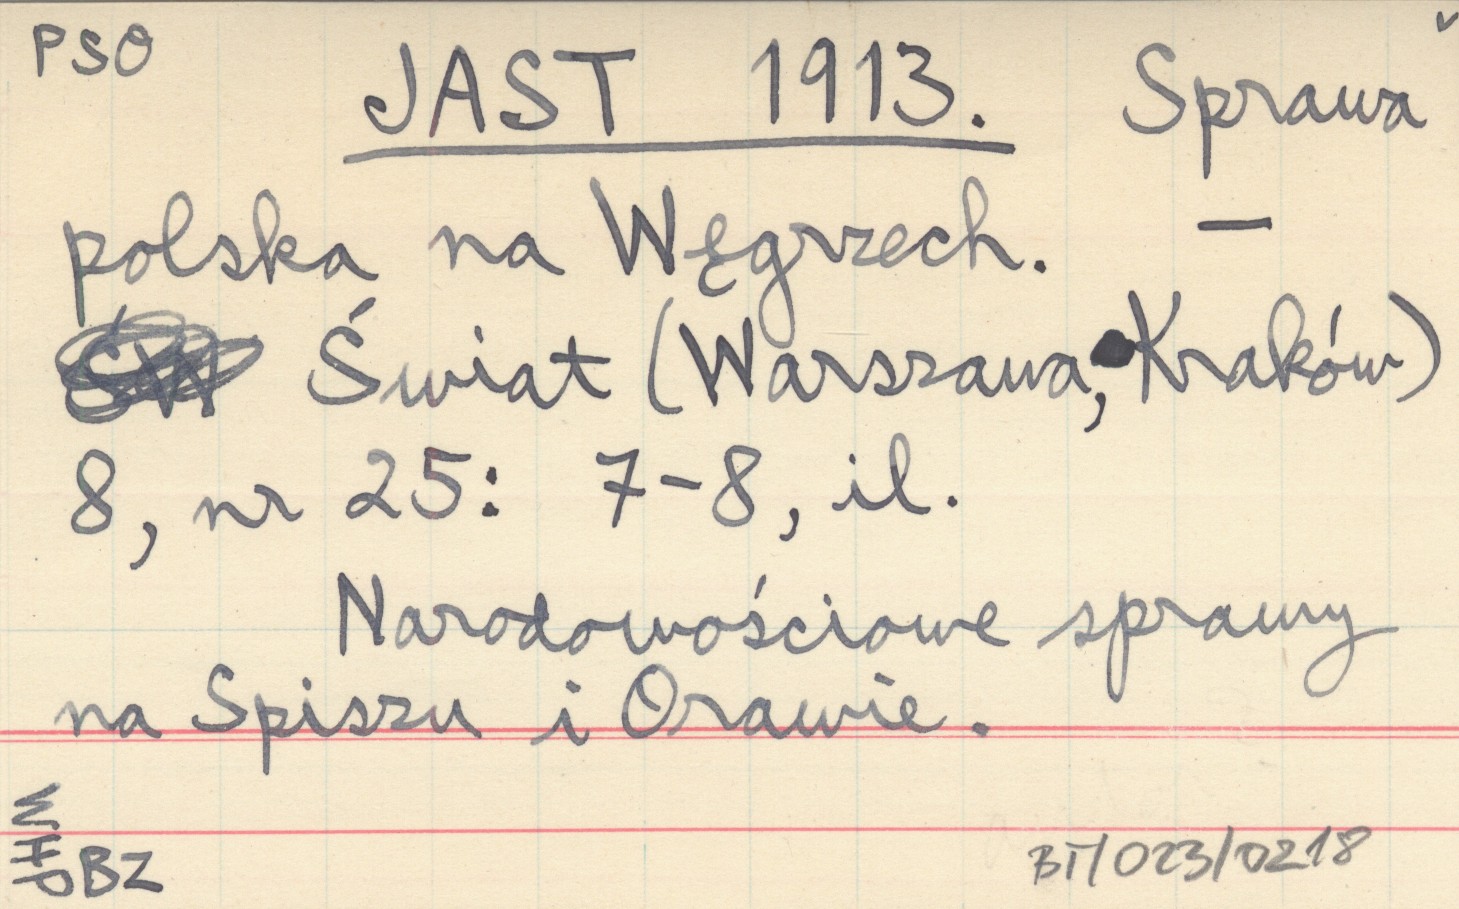 PSO
JAST 1913. Sprawa
polska na Węgrzech. —
Świat (Warszawa, Kraków)
8, nr 25: 7-8, il.
Narodowościowe sprawy
na Spiszu i Orawie.
BZ
BT/023/0218